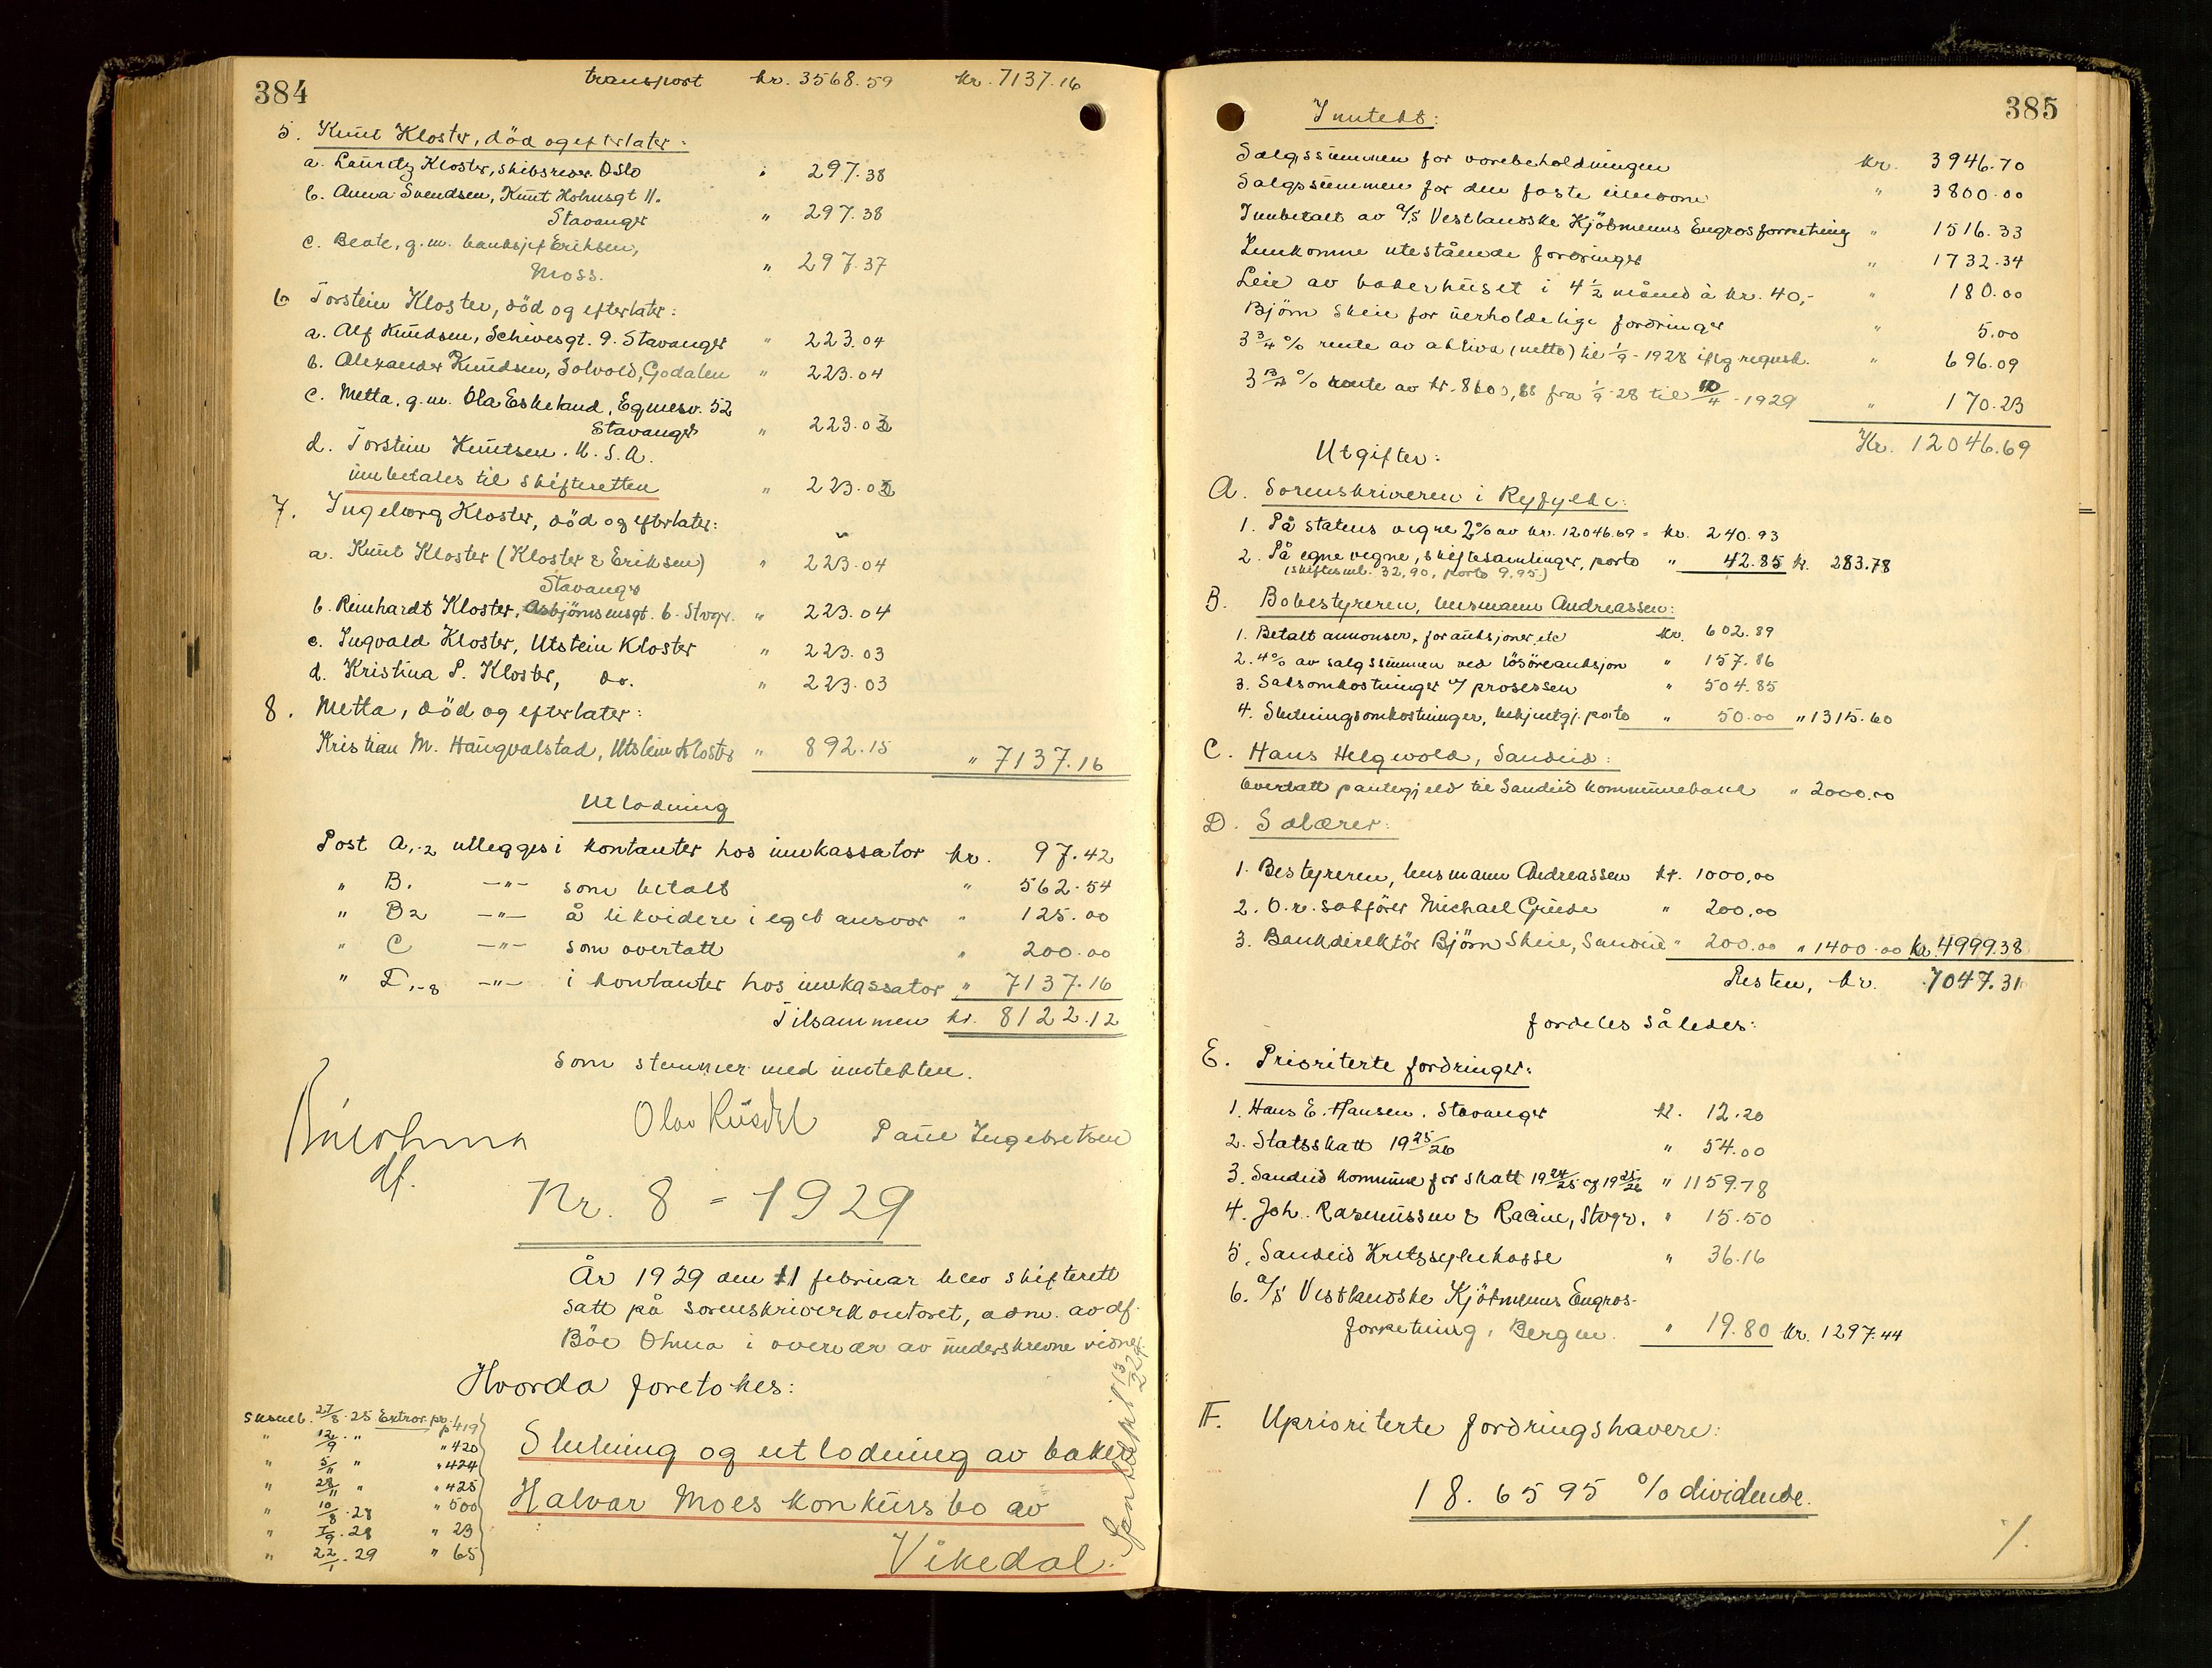 384
transport kr. 3568.59 kr. 7137.16
5. Knut Kloster, död og efterlater:
a. Lauritz Kloster, skibsreder Oslo " 297.38
b. Anna Svendsen, Knut Holmsgt 11.
Stavanger " 297.38
c. Beate, g.m. banksjef Eriksen,
Moss. " 297.37
6 Torstein Kloster, död og efterlater:
a. Alf Knudsen, Schivesgt. 9. Stavanger " 223.04
b. Alexander Knudsen, Solvold, Godalen " 223.04
c. Metta, g.m. Ola Eskeland, Egnesv. 52
Stavanger " 223.03
d. Torstein Knutsen. U.S.A.
innbetales til skifteretten " 223.03
7. Ingeborg Kloster, död og efterlater:
a. Knut Kloster (Kloster & Eriksen) " 223.04
Stavanger
b. Reinhardt Kloster, Asbjörnsensgt. 6. Stvgr. " 223.04
c. Ingvald Kloster, Utstein Kloster " 223.03
d. Kristina P. Kloster, do. " 223.03
8. Metta, död og efterlater:
Kristian M. Haugvalstad, Utstein Kloster " 892.15 " 7137.16
Utlodning
Post A,-2 utlegges i kontanter hos innkassator kr. 97.42
" B. -"- som betalt " 562.54
" B2 -"- å likvidere i eget ansvar " 125.00
" C -"- som overtatt " 200.00
" I,-8 -"- i kontanter hos innkassator " 7137.16
Tilsammen kr. 8122.12
som stemmer med inntekten.
Olav Paul Ingebretsen
df.
Nr. 8 - 1929
År 1929 den 11 februar blev skifterett
satt på sorenskriverkontoret, adm. av df.
Böe Ohma i overvær av underskrevne vidner
Hvorda foretokes:
27/8. 25 Extror. pr. p 419
" 12/9 " " 420
" 5/11 " " 424
" 28/11 " " 425
" 10/8. 28 " 500
" 1/9. 28 " 23
" 22/1. 29 " 65
Slutning og utlodning av baker
Halvar Moes konkursbo av
Vikedal.
385
Inntekt:
Salgssummen for varebeholdningen kr. 3946.70
Salgssummen for den faste eiendom " 3800.00
Innbetalt av a/s Vestlandske Kjöbmenns Engrosforretning " 1516.33
Innkomne utestående fordringer " 1732.34
Leie av bakerhuset i 4 1/2 måned à kr. 40,- " 180.00
Björn Skeie for uerholdelige fordringer " 5.00
3 3/4 % rente av aktiva (netto) til 1/9 - 1928 iflg regnsk. " 696.09
3 3/4 % rente av kr. 8600,88 fra 1/9 28 til 10/4 - 1929 " 170.23
Kr. 12046.69
Utgifter:
A. Sorenskriveren i Ryfylke:
1. På statens vegne 2% av kr. 12046.69 = kr. 240.93
2. På egne vegne, skiftesamlinger, porto " 42.85 kr. 283.78
(skiftesml. 32,90, porto 9.95)
B. Bobestyreren, lensmann Andreassen:
1. Betalt annonser, for auksjoner, etc kr. 602.89
2. 4% av salgssummen ved lösöreauksjon " 157.86
3. Saksomkostninger v/ prosessen " 504.85
4. Slutningsomkostninger, bekjentgj. porto " 50.00 " 1315.60
C. Hans Helgevold, Sandeid:
Overtatt pantegjeld til Sandeid kommunebank " 2000.00
D. Salærer:
1. Bestyreren, lensmann Andreassen kr. 1000,00
2. O.r. sakförer Michael Grude " 200,00
3. Bankdirektör Björn Skeie, Sandeid " 200.00 " 1400.00 kr. 4999.38
Resten, kr. 7047.31
fordeles således:
E. Prioriterte fordringer:
1. Hans E. Hansen. Stavanger kr. 12.20
2. Statsskatt 19 25/26 " 54.00
3. Sandeid kommune for skatt 19 24/25 og 19 25/26 " 1159.78
4. Joh. Rasmussen & Racine, Stvgr. " 15.50
5. Sandeid Kretssykekasse " 36.16
6. a/s Vestlandske Kjöbmenns Engros-
forretning, Bergen. " 19.80 kr. 1297.44
F. Uprioriterte fordringshavere:
18.6595 % dividende.
/.